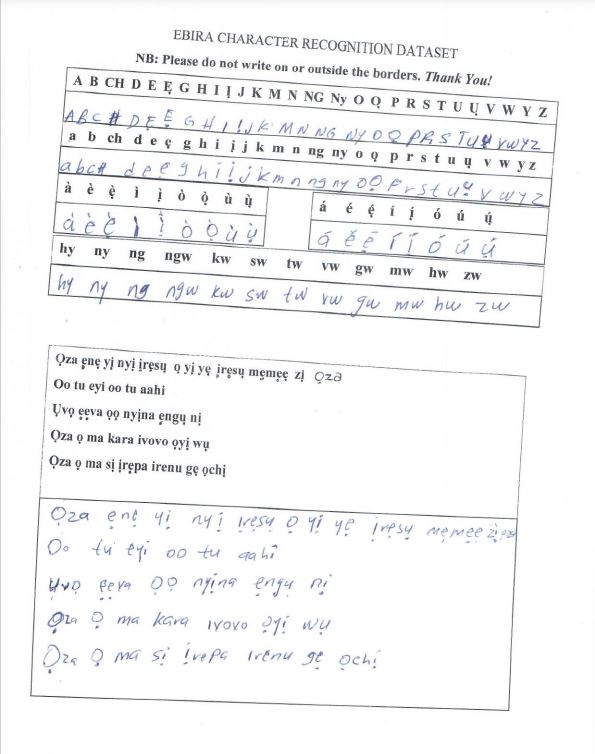 EBIRA CHARACTER RECOGNITION DATASET
NB: Please do not write on or outside the borders. Thank You!
A B CH D E Ẹ G H I Ị J K M N NG Ny O Ọ P R S T U Ụ V W Y Z
A B C H D E Ẹ G H I Ị J K M N NG Ny O Ọ P R S T U Ụ V W Y Z
a b ch d e ẹ g h i ị j k m n ng ny o ọ p r s t u ụ v w y z
a b c h d e ẹ g h i ị j k m n ng ny o ọ p r s t u ụ v w y z
à è ẹ̀ ì ị̀ ò ọ̀ ù ụ̀
à è ẹ̀ ì ị̀ ò ọ̀ ù ụ̀
á é ẹ́ í ị́ ó ú ụ́
á é ẹ́ í ị́ ó ú ụ́
hy ny ng ngw kw sw tw vw gw mw hw zw
hy ny ng ngw kw sw tw vw gw mw hw zw
Ọza ẹnẹ yị nyị ịrẹsụ ọ yị yẹ ịrẹsụ mẹmẹẹ zị ọza
Oo tu eyi oo tu aahi
Ụvọ ẹẹva ọọ nyịna ẹngụ nị
Ọza ọ ma kara ivovo ọyị wụ
Ọza ọ ma sị ịrẹpa irenu gẹ ọchị
Ọza ẹnẹ yị nyị ịrẹsụ Ọ yị yẹ ịrẹsụ mẹmẹẹ zị ọza
Oo tu eyi oo tu aahi
Ụvọ ẹẹva ọọ nyịna ẹngụ nị
Ọza Ọ ma kara ivovo ọyị wụ
Ọza Ọ ma sị ịrepa irenu gẹ ọchị